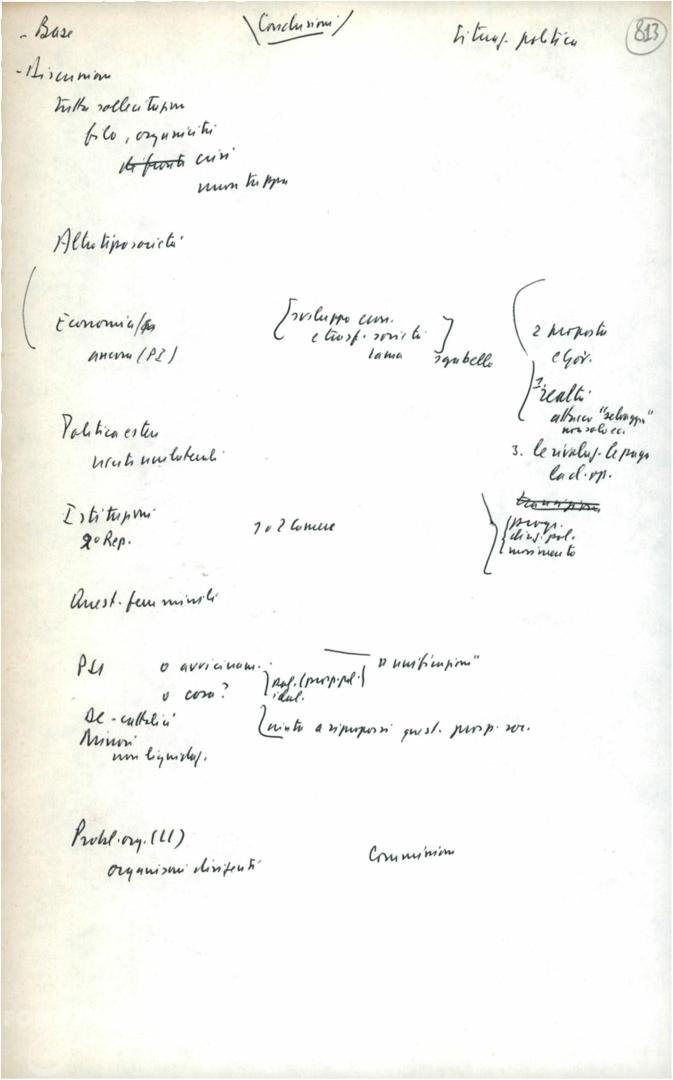 - Base
\Conclusioni/
Situaz. politica
813
- Discussione
tutte sollecitazioni
filo, organicità
di fronte crisi
non tappa
Altro tipo società
Economia
ancora (PI)
[sviluppo econ.
e trasf. società]
Lama
sgabello
2 proposta
e Gov.
1 realtà
attacco "selvaggio"
non solo ec.
3. le rivalutaz. le paga
la cl. op.
Politica estera
unilaterali
Istituzioni
2° Rep.
1 o 2 Camere
progr.
movimento
Quest. femminile
PSI
o avvicinam.
o cosa?
(prosp. pol.)
ideal.
"unificazione"
DC - cattolici
Minori
non liquidaz.
a riproporsi quest. prosp. soc.
Probl. org. (LL)
organismi dirigenti
Commissioni